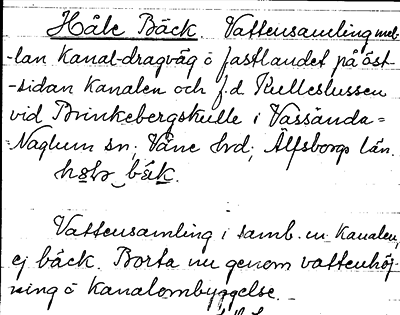 Håle Bäck. Vattensamling mel-
-lan Kanal-dragväg o fastlandet på öst-
-sidan Kanalen och f.d. Kulleslussen
vid Brinkebergskulle i Vassända=
=Naglum sn; Väne hrd; Älfsborgs län.
bäk.
Vattensamling i samb. m. Kanalen,
ej bäck. Borta nu genom vattenhöj-
ning o Kanalombyggelse.